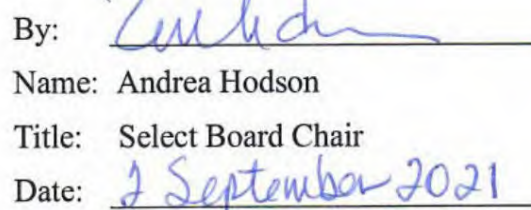 By:
Name: Andrea Hodson
Title: Select Board Chair
Date: 2 September 2021